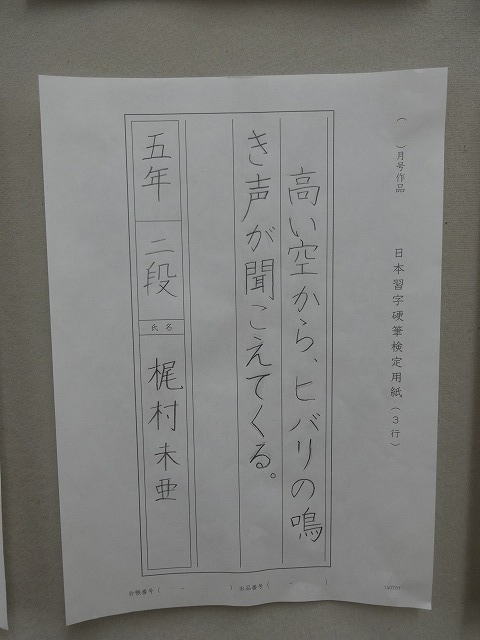 ( )月号作品
日本習字硬筆検定用紙(3行)
高い空から、ヒバリの鳴
き声が聞こえてくる。
五年 二段 氏名 梶村未亜
台帳番号( - ) 出品番号( - )